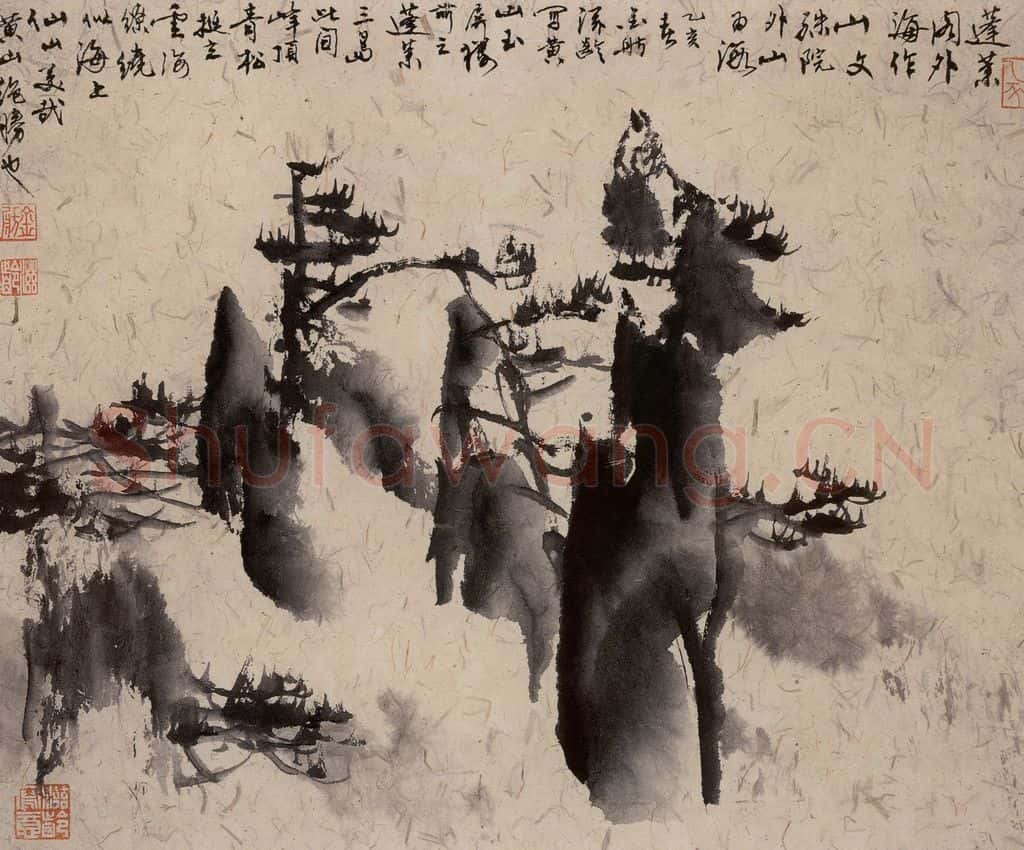 蓬莱
阁外
海作
山文
殊院
外山
为海
乙亥
春
金舫
写黄
山玉
屏楼
前之
蓬莱
三島
此间
峰頂
青松
挺立
雲海
缭繞
似海上
仙山美哉
黄山絶勝也
Shufawang.CN